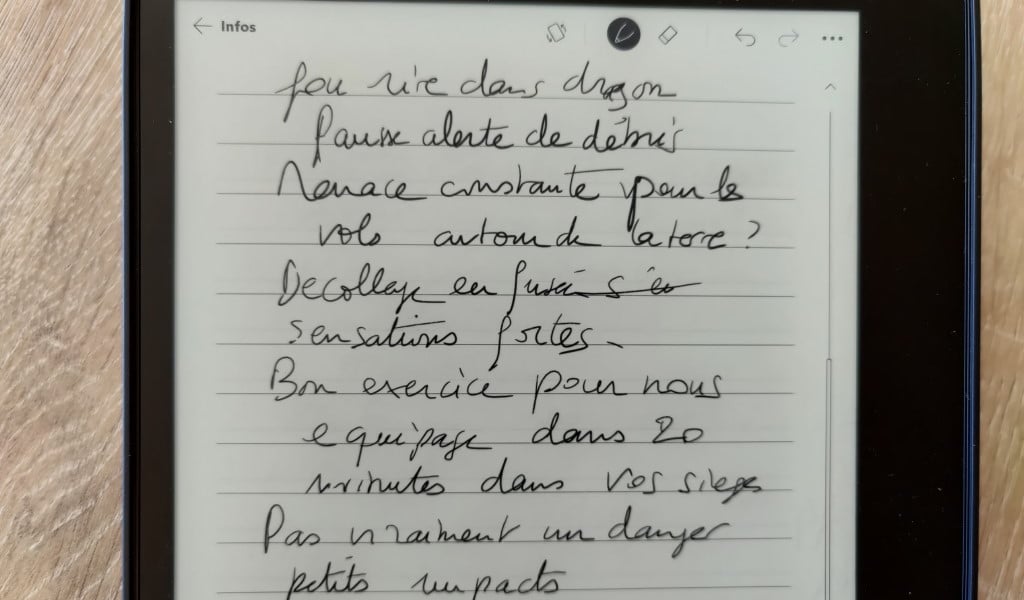 Infos
fou rire dans dragon
Pause alerte de débris
Menace constante pour les
vols autour de la terre ?
Decollage en fusée s'en
sensations fortes -
Bon exercice pour nous
equipage dans 20
minutes dans vos sieges
Pas vraiment un danger
petits impacts